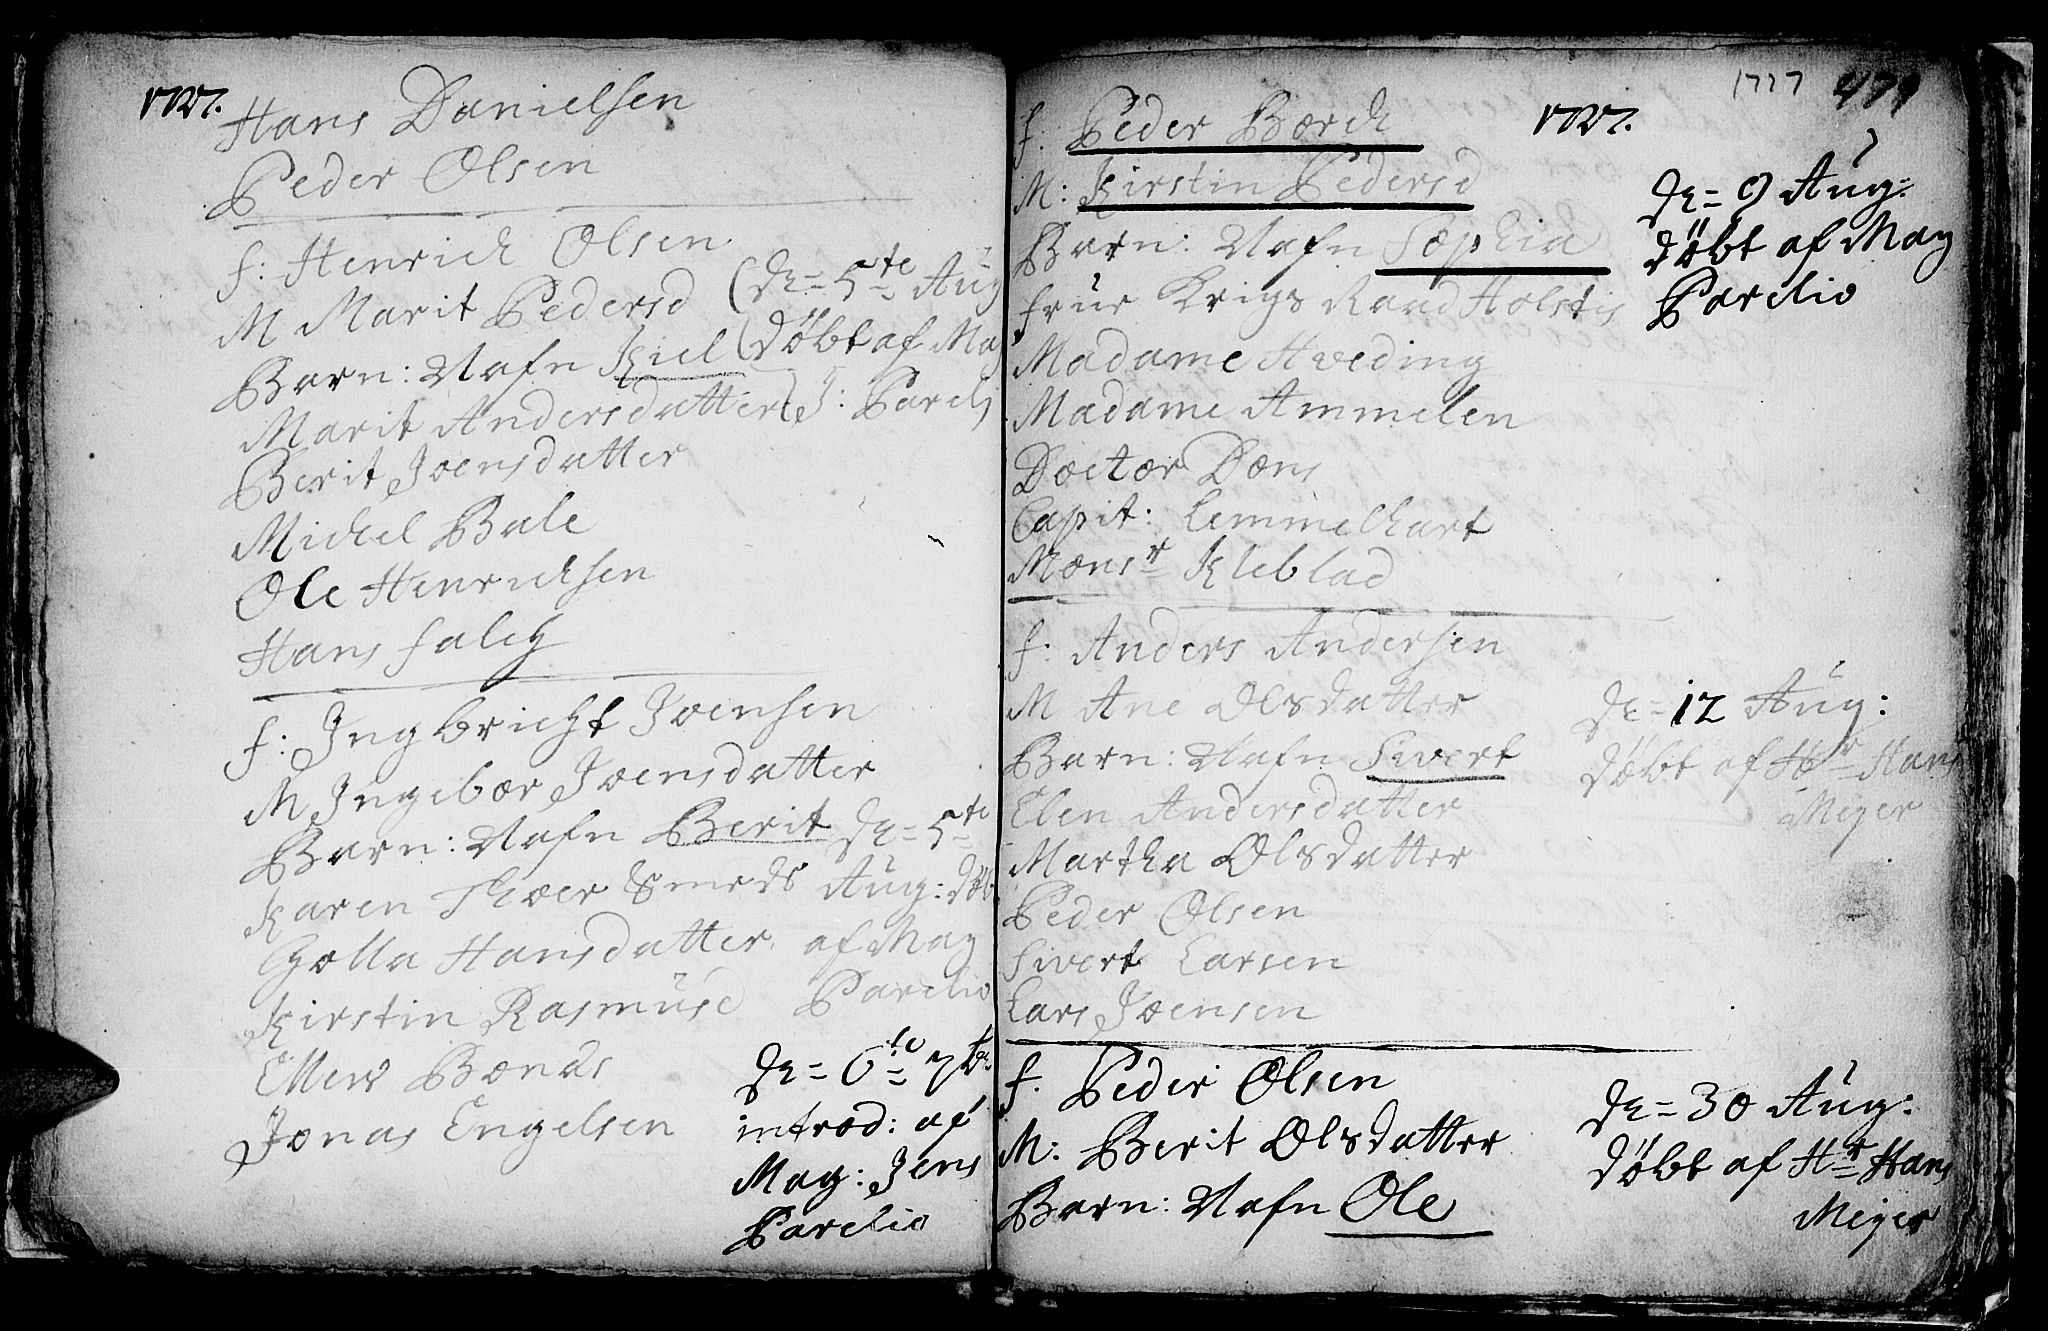 1727.
Hans Danielsen
Peder Olsen
f: Henrich Olsen
M Marit Pedersd (d = 5te Aug
Barn: Nafn Kiel (døbt af Mag
Marit Andersdatter) J: Pareli
Berit Joensdatter
Michel Bale
Ole Henrichsen
Hans falch
f: Ingbricht Joensen
M Ingebor Joensdatter
Barn: Nafn Berit d = 5te
Karen Thoer Smeds Aug: døb
Golla Hansdatter. af Mag
Kirstin Rasmusd Parelio
Ellen Bonds
Jonas Engelsen
d = 6te 7br:
introd: af
Mag: Jens
Parelio
1727 479
1727.
f. Peder Borch
M: Kirstin Pedersd
Barn: Nafn Sophia
d = 9 Aug:
døbt af Mag
Parelio
frue Krigs Raad Holstis
Madame Hveding
Madame Ammelen
Doctor Dons
Capit: Lemmelhart
Monsr Kleblad
f: Anders Andersen
M Ane Olsdatter
Barn: Nafn Sivert
d = 12 Aug:
døbt af Hr Hans
Meyer
Elen Andersdatter
Martha Olsdatter
Peder Olsen
Sivert Larsen
Lars Joensen
f. Peder Olsen
M: Berit Olsdatter
Barn: Nafn Ole
d = 30 Aug:
døbt af Hr Hans
Meyer